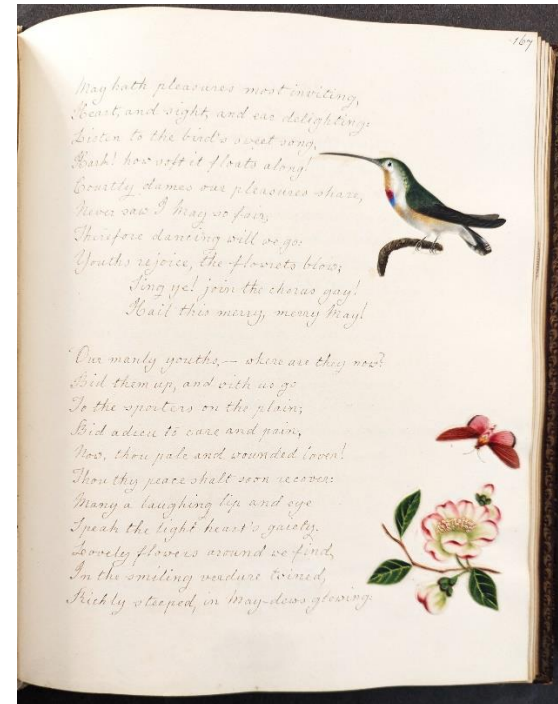 167
May hath pleasures most inviting,
Heart, and sight, and ear delighting.
Listen to the bird's sweet song,
Hark! how soft it floats along!
Courtly dames our pleasures share,
Never saw I May so fair;
Therefore dancing will we go:
Youths rejoice, the flowrets blow;
Sing ye! join the chorus gay!
Hail this merry, merry May!
Our manly youths,— where are they now?
Bid them up, and with us go
To the sporters on the plain;
Bid adieu to care and pain,
Now, thou pale and wounded lover!
Thou thy peace shalt soon recover:
Many a laughing lip and eye
Speak the light heart's gaiety.
Lovely flowers around we find,
In the smiling verdure twined,
Richly steeped, in May-dews glowing.